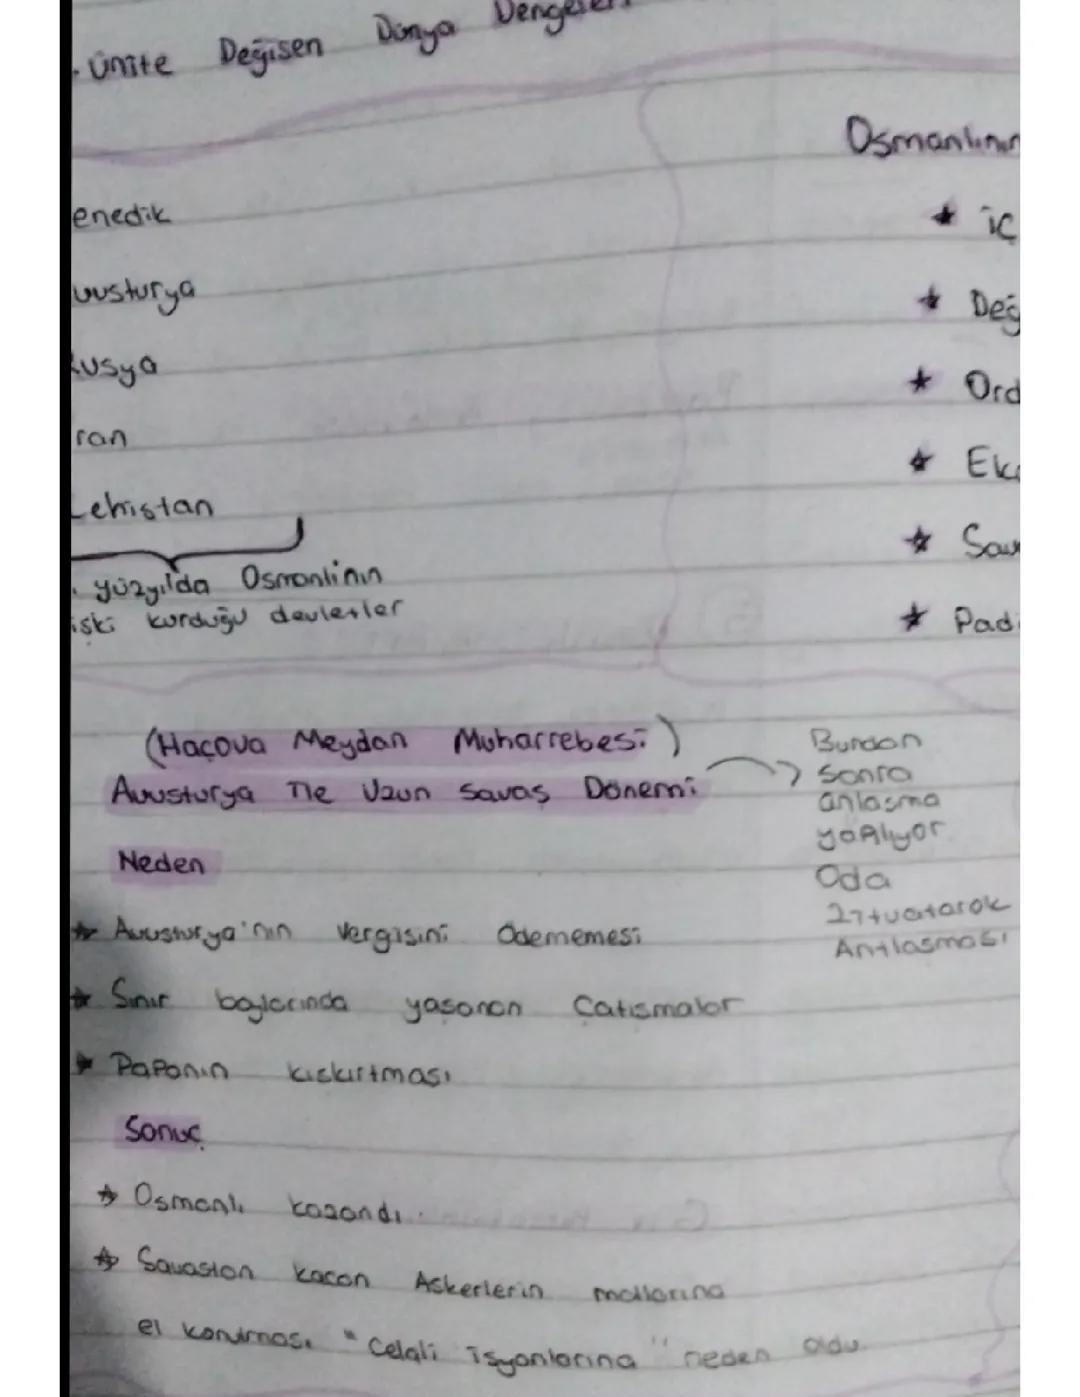 . ünite Değişen Dünya Dengeleri
enedik
vusturya
Rusya
ran
Lehistan
. yüzyılda Osmanlinin
işki kurduğu devletler
Osmanlının
★ iç
★ Değ
★ Ord
★ Eko
★ Sav
★ Padi
(Haçova Meydan Muharrebesi)
Avusturya ile Uzun Savaş Dönemi
Burdan
Sonra
anlasma
yapılıyor
Oda
Zitvatarok
Antlasması
Neden
★ Avusturya'nın Vergisini Ödememesi
★ Sınır boylarında yasanan Catısmalar
★ Papanın kıskırtması
Sonuç
★ Osmanlı kazandı.
★ Savastan kacan Askerlerin mallarına
el konulması "Celali isyanlarına" neden oldu.